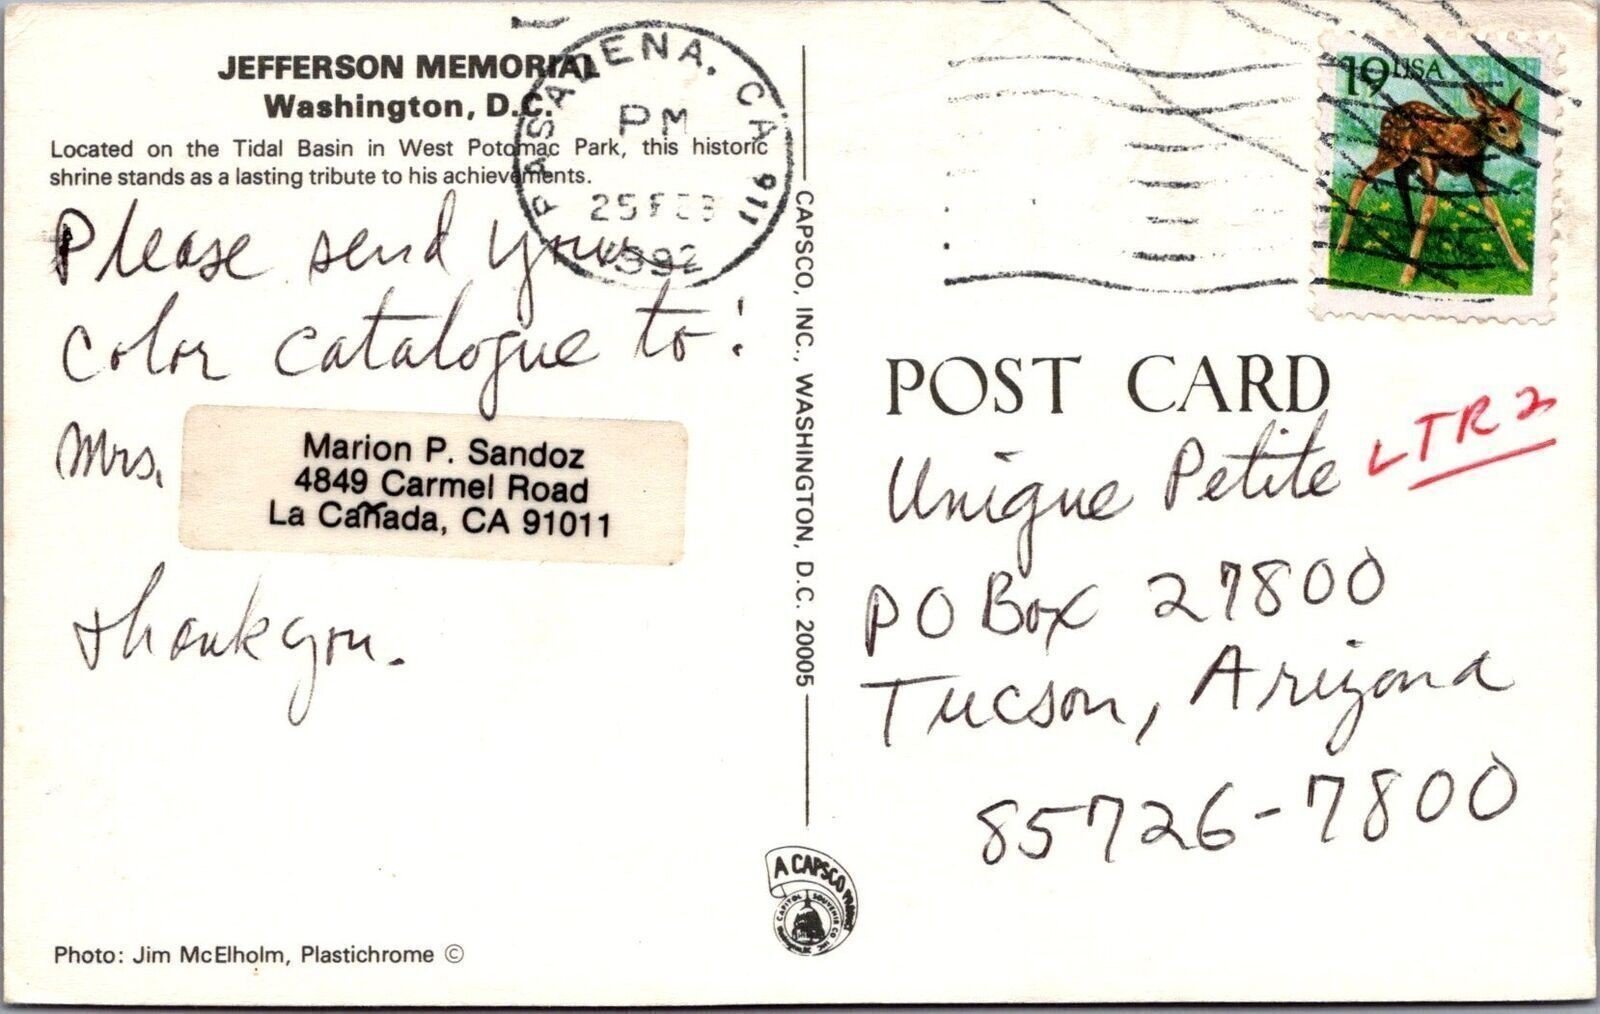 JEFFERSON MEMORIAL
Washington, D.C.
Located on the Tidal Basin in West Potomac Park, this historic
shrine stands as a lasting tribute to his achievements.
PASADENA, CA 911
PM
25 FEB
1992
19 USA
Please send your
color catalogue to:
Mrs.
Marion P. Sandoz
4849 Carmel Road
La Cañada, CA 91011
Thank you.
Photo: Jim McElholm, Plastichrome ©
CAPSCO, INC., WASHINGTON, D.C. 20005
A CAPSCO PRODUCT
CAPITOL SOUVENIR CO INC
POST CARD
LTR 2
Unique Petite
PO Box 27800
Tucson, Arizona
85726-7800